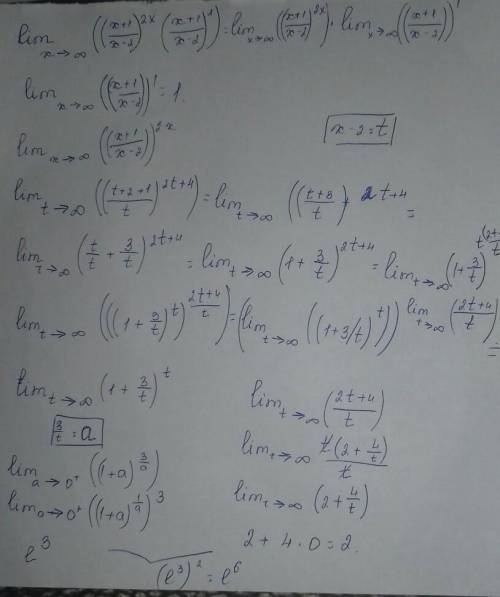 lim x→∞ (((x+1)/(x-2))^2x ((x+1)/(x-2))^1) = lim x→∞ (((x+1)/(x-2))^2x) · lim x→∞ (((x+1)/(x-2)))^1
lim x→∞ (((x+1)/(x-2)))^1 = 1.
lim x→∞ (((x+1)/(x-2)))^2x
x-2=t
lim t→∞ (((t+2+1)/t)^2t+4) = lim t→∞ (((t+3)/t) 2t+4 =
lim t→∞ (t/t + 3/t)^2t+4 = lim t→∞ (1+3/t)^2t+4 = lim t→∞ (1+3/t)^t(2t
lim t→∞ (((1+3/t)^t)^(2t+4)/t) = (lim t→∞ ((1+3/t)^t))^lim t→∞ ((2t+4)/t) =
lim t→∞ (1+3/t)^t
lim t→∞ ((2t+4)/t)
3/t = a
lim t→∞ t(2+4/t)/t
lim a→0+ ((1+a)^3/a)
lim t→∞ (2+4/t)
lim a→0+ ((1+a)^1/a)^3
2+4·0=2.
e^3
(e^3)^2 = e^6